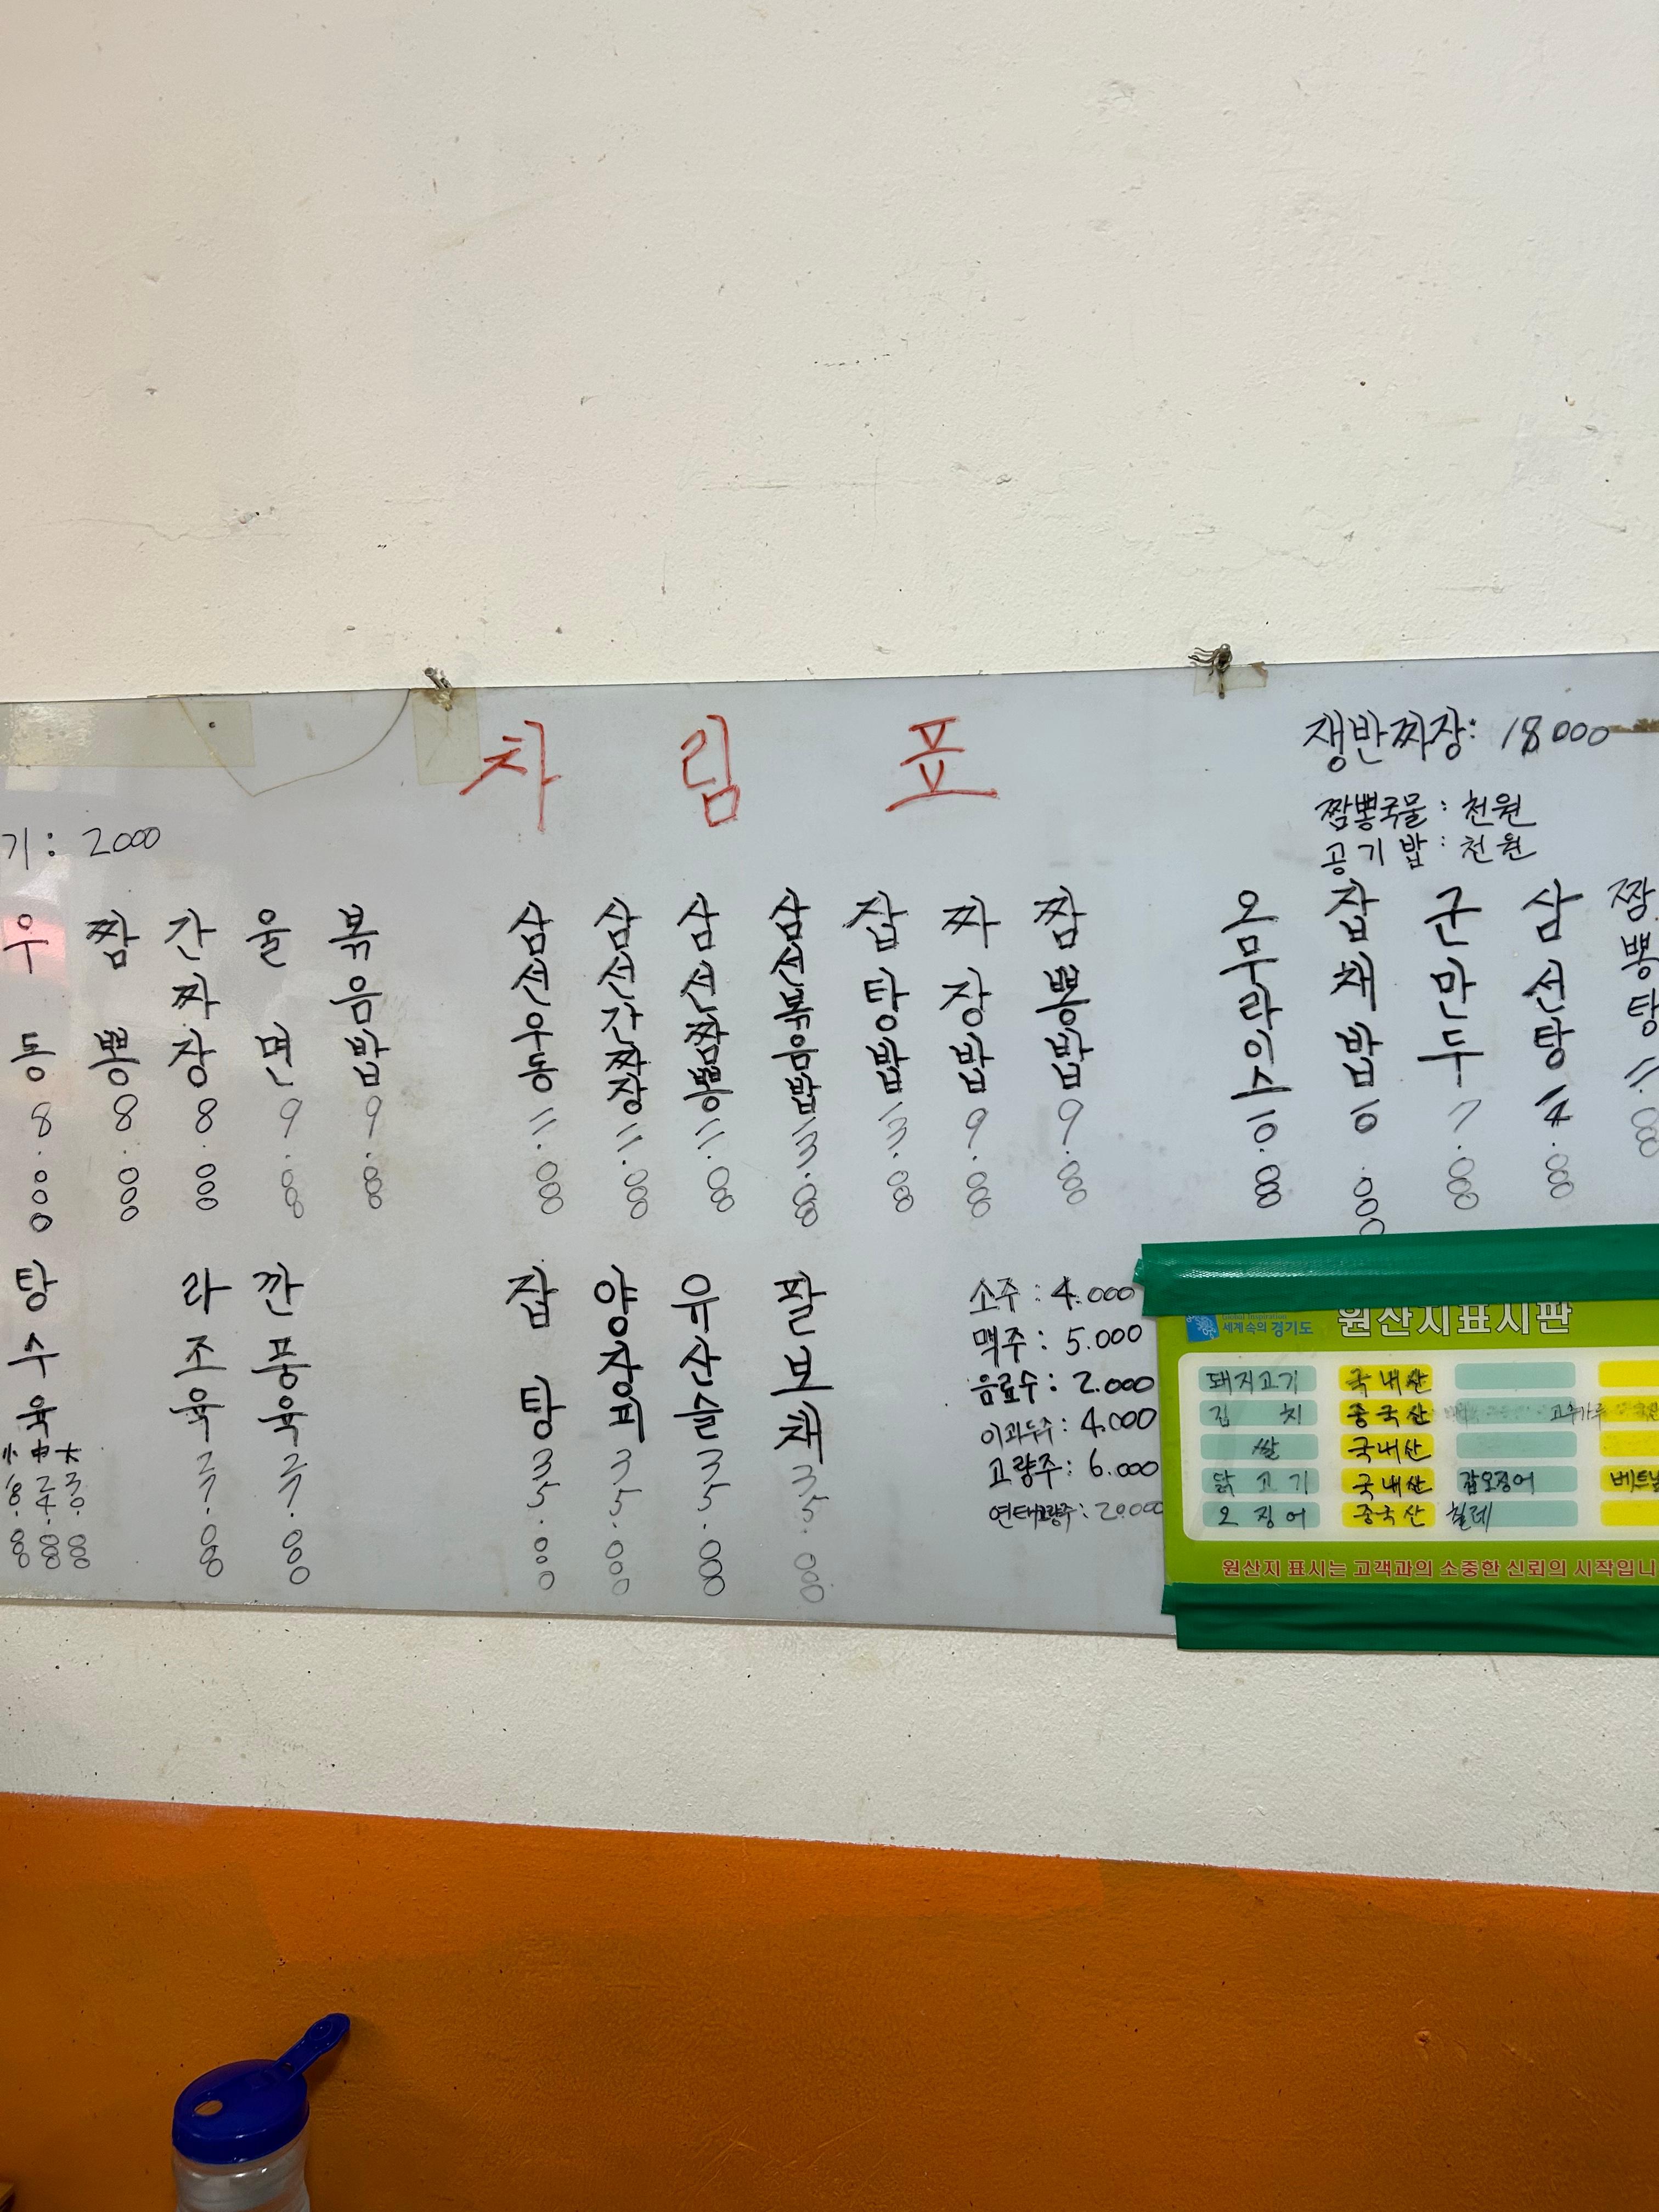 차림표
쟁반짜장: 18000
짬뽕국물: 천원
공기밥: 천원
기: 2000
우동 8.000
짬뽕 8.000
간짜장 8.000
울면 9.000
볶음밥 9.000
삼선우동 11.000
삼선간짜장 11.000
삼선짬뽕 11.000
삼선볶음밥 13.000
잡탕밥 13.000
짜장밥 9.000
짬뽕밥 9.000
오무라이스 10.000
잡채밥 10.000
군만두 7.000
삼선탕 14.000
짬뽕탕 11.
탕수육
小 中 大
18.000 24.000 30.000
라조육 27.000
깐풍육 27.000
잡탕 35.000
양장피 35.000
유산슬 35.000
팔보채 35.000
소주: 4.000
맥주: 5.000
음료수: 2.000
이과두주: 4.000
고량주: 6.000
연태고량주: 20.000
세계속의 경기도
원산지표시판
돼지고기 국내산
김치 중국산 고추가루
쌀 국내산
닭고기 국내산 갑오징어 베트남
오징어 중국산 칠레
원산지 표시는 고객과의 소중한 신뢰의 시작입니